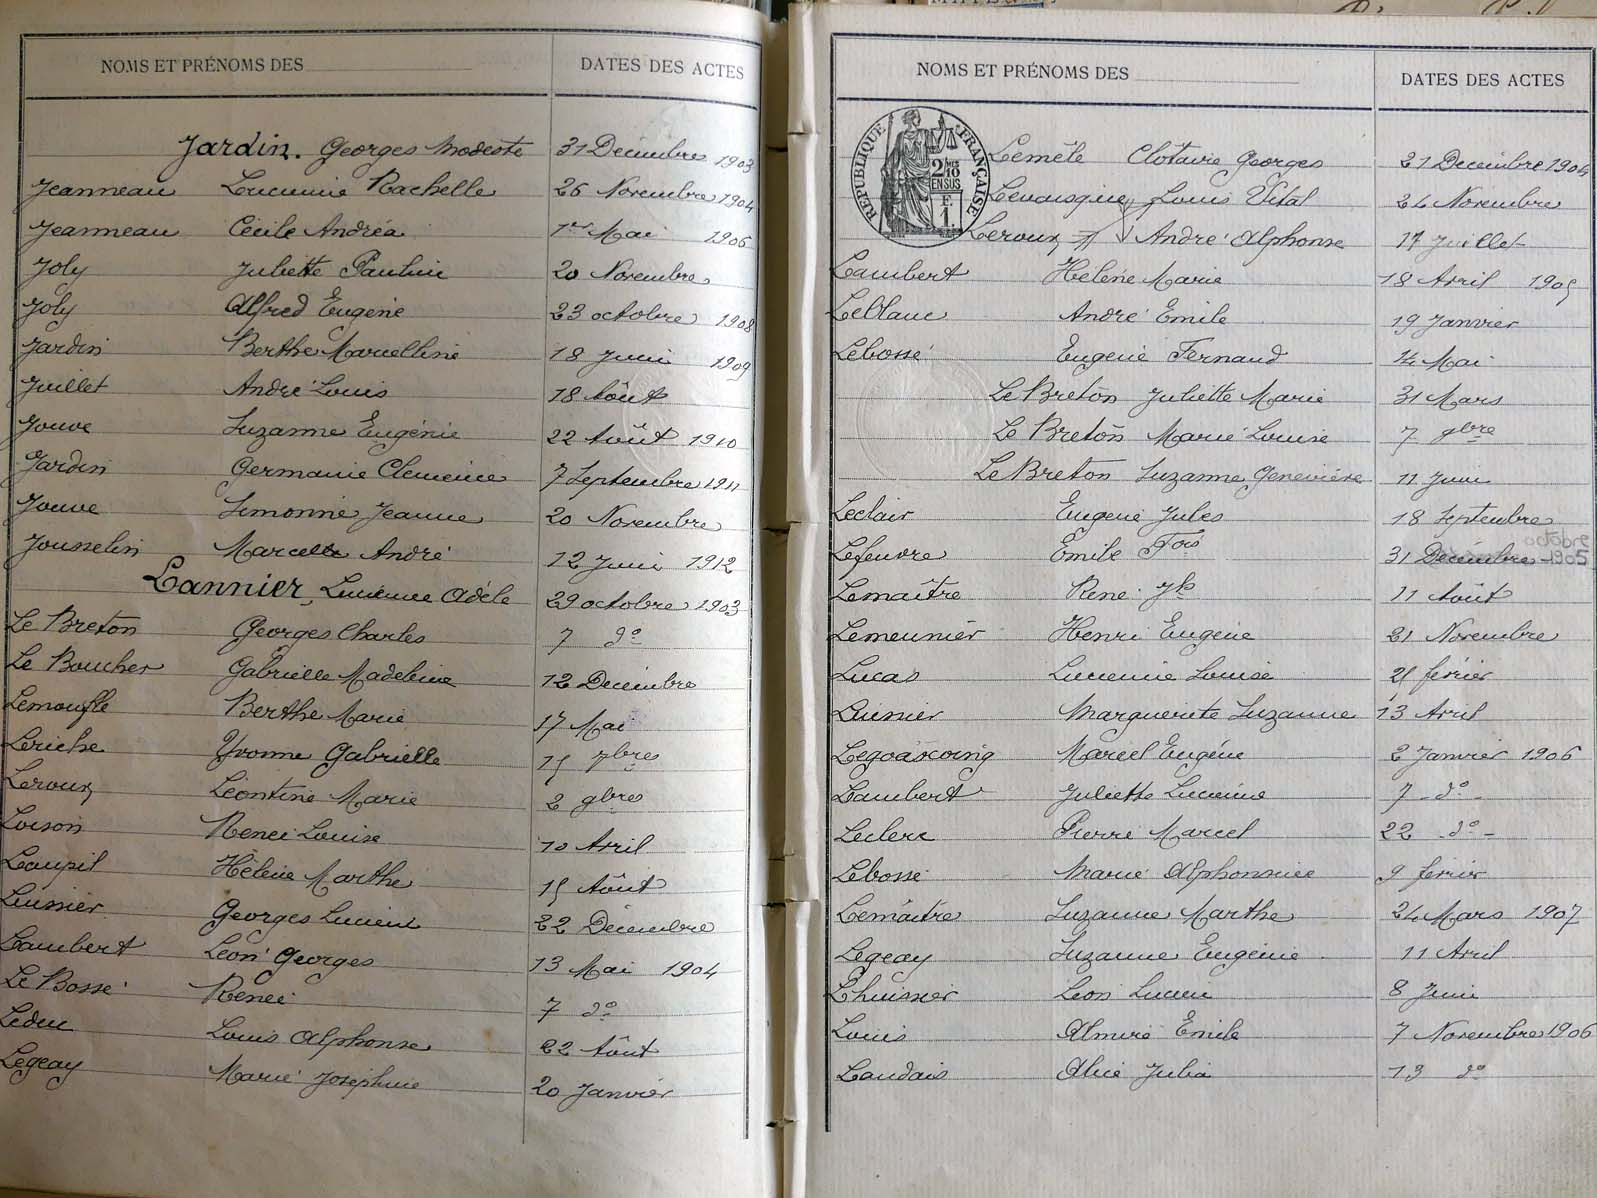 NOMS ET PRÉNOMS DES DATES DES ACTES
Jardin. Georges Modeste 31 Décembre 1903
Jeanneau Lucienne Rachelle 26 Novembre 1904
Jeanneau Cécile Andréa 1er Mai 1906
Joly Juliette Pauline 20 Novembre
Joly Alfred Eugène 23 octobre 1908
Jardin Berthe Marcelline 18 Juin 1909
Juillet André Louis 18 Août
Jouve Suzanne Eugénie 22 Août 1910
Jardin Germaine Clemence 7 Septembre 1911
Jouve Simonne Jeanne 20 Novembre
Jousselin Marcelle André 12 Juin 1912
Lannier, Lucienne Adèle 29 octobre 1903
Le Breton Georges Charles 7 do
Le Boucher Gabrielle Madeleine 12 Décembre
Lemoufle Berthe Marie 17 Mai
Leriche Yvonne Gabrielle 15 7bres
Leroux Léontine Marie 2 9bres
Loison Renée Louise 10 Avril
Laupil Hélène Marthe 15 Août
Georges Lucien 22 Décembre
Lambert Léon Georges 13 Mai 1904
Le Bossé Renée 7 do
Leduc Louis Alphonse 22 Août
Legeay Marie Joséphine 20 Janvier
NOMS ET PRÉNOMS DES DATES DES ACTES
RÉPUBLIQUE FRANÇAISE
2 MES
10
EN SUS
F.
1.
Lemêle Clotaire Georges 21 Décembre 1904
Louis Vital 24 Novembre
Leroux André Alphonse 17 Juillet
Lambert Hélène Marie 18 Avril 1905
Leblanc André Emile 19 Janvier
Lebossé Eugène Fernand 14 Mai
Le Breton Juliette Marie 31 Mars
Le Breton Marie Louise 7 9bre
Le Breton Suzanne Geneviève 11 Juin
Leclair Eugène Jules 18 Septembre
Lefeuvre Emile Fois 31 Décembre
Lemaître René Jh 11 Août
Lemeunier Henri Eugène 21 Novembre
Lucas Lucienne Louise 21 février
Marguerite Suzanne 13 Avril
Legoascoing Marcel Eugène 2 Janvier 1906
Lambert Juliette Lucienne 7 - do -
Leclerc Pierre Marcel 22 do -
Lebossé Marie Alphonsine 9 février
Lemaitre Suzanne Marthe 24 Mars 1907
Legeay Suzanne Eugénie 11 Avril
Lhuissier Léon Lucien 8 Juin
Louis Almire Emile 7 Novembre 1906
Landais Alice Julia 13 do